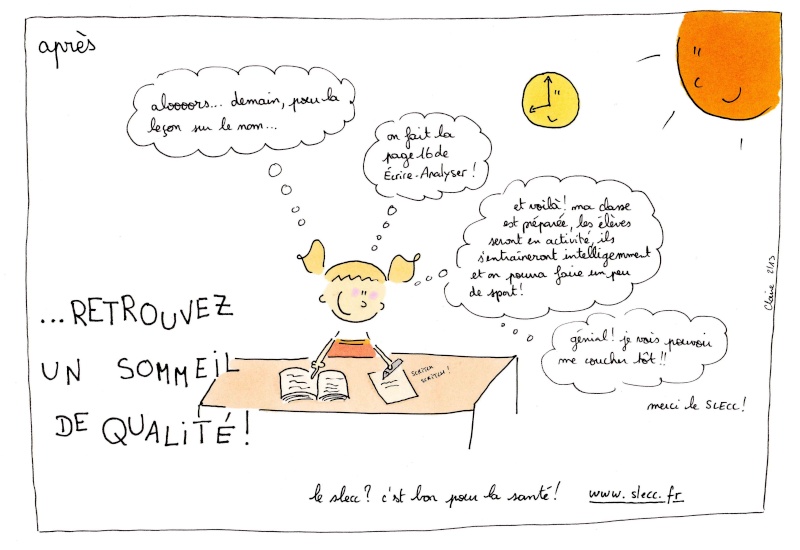 après
aloooors... demain, pour la
leçon sur le nom...
on fait la
page 16 de
Écrire-Analyser !
et voilà ! ma classe
est préparée, les élèves
seront en activité, ils
s'entraîneront intelligemment
et on pourra faire un peu
de sport !
génial ! je vais pouvoir
me coucher tôt !!
merci le SLECC !
...RETROUVEZ
UN SOMMEIL
DE QUALITÉ !
SCRITCH
SCRITCH !
le slecc ? c'est bon pour la santé ! www.slecc.fr
Claire 2/13